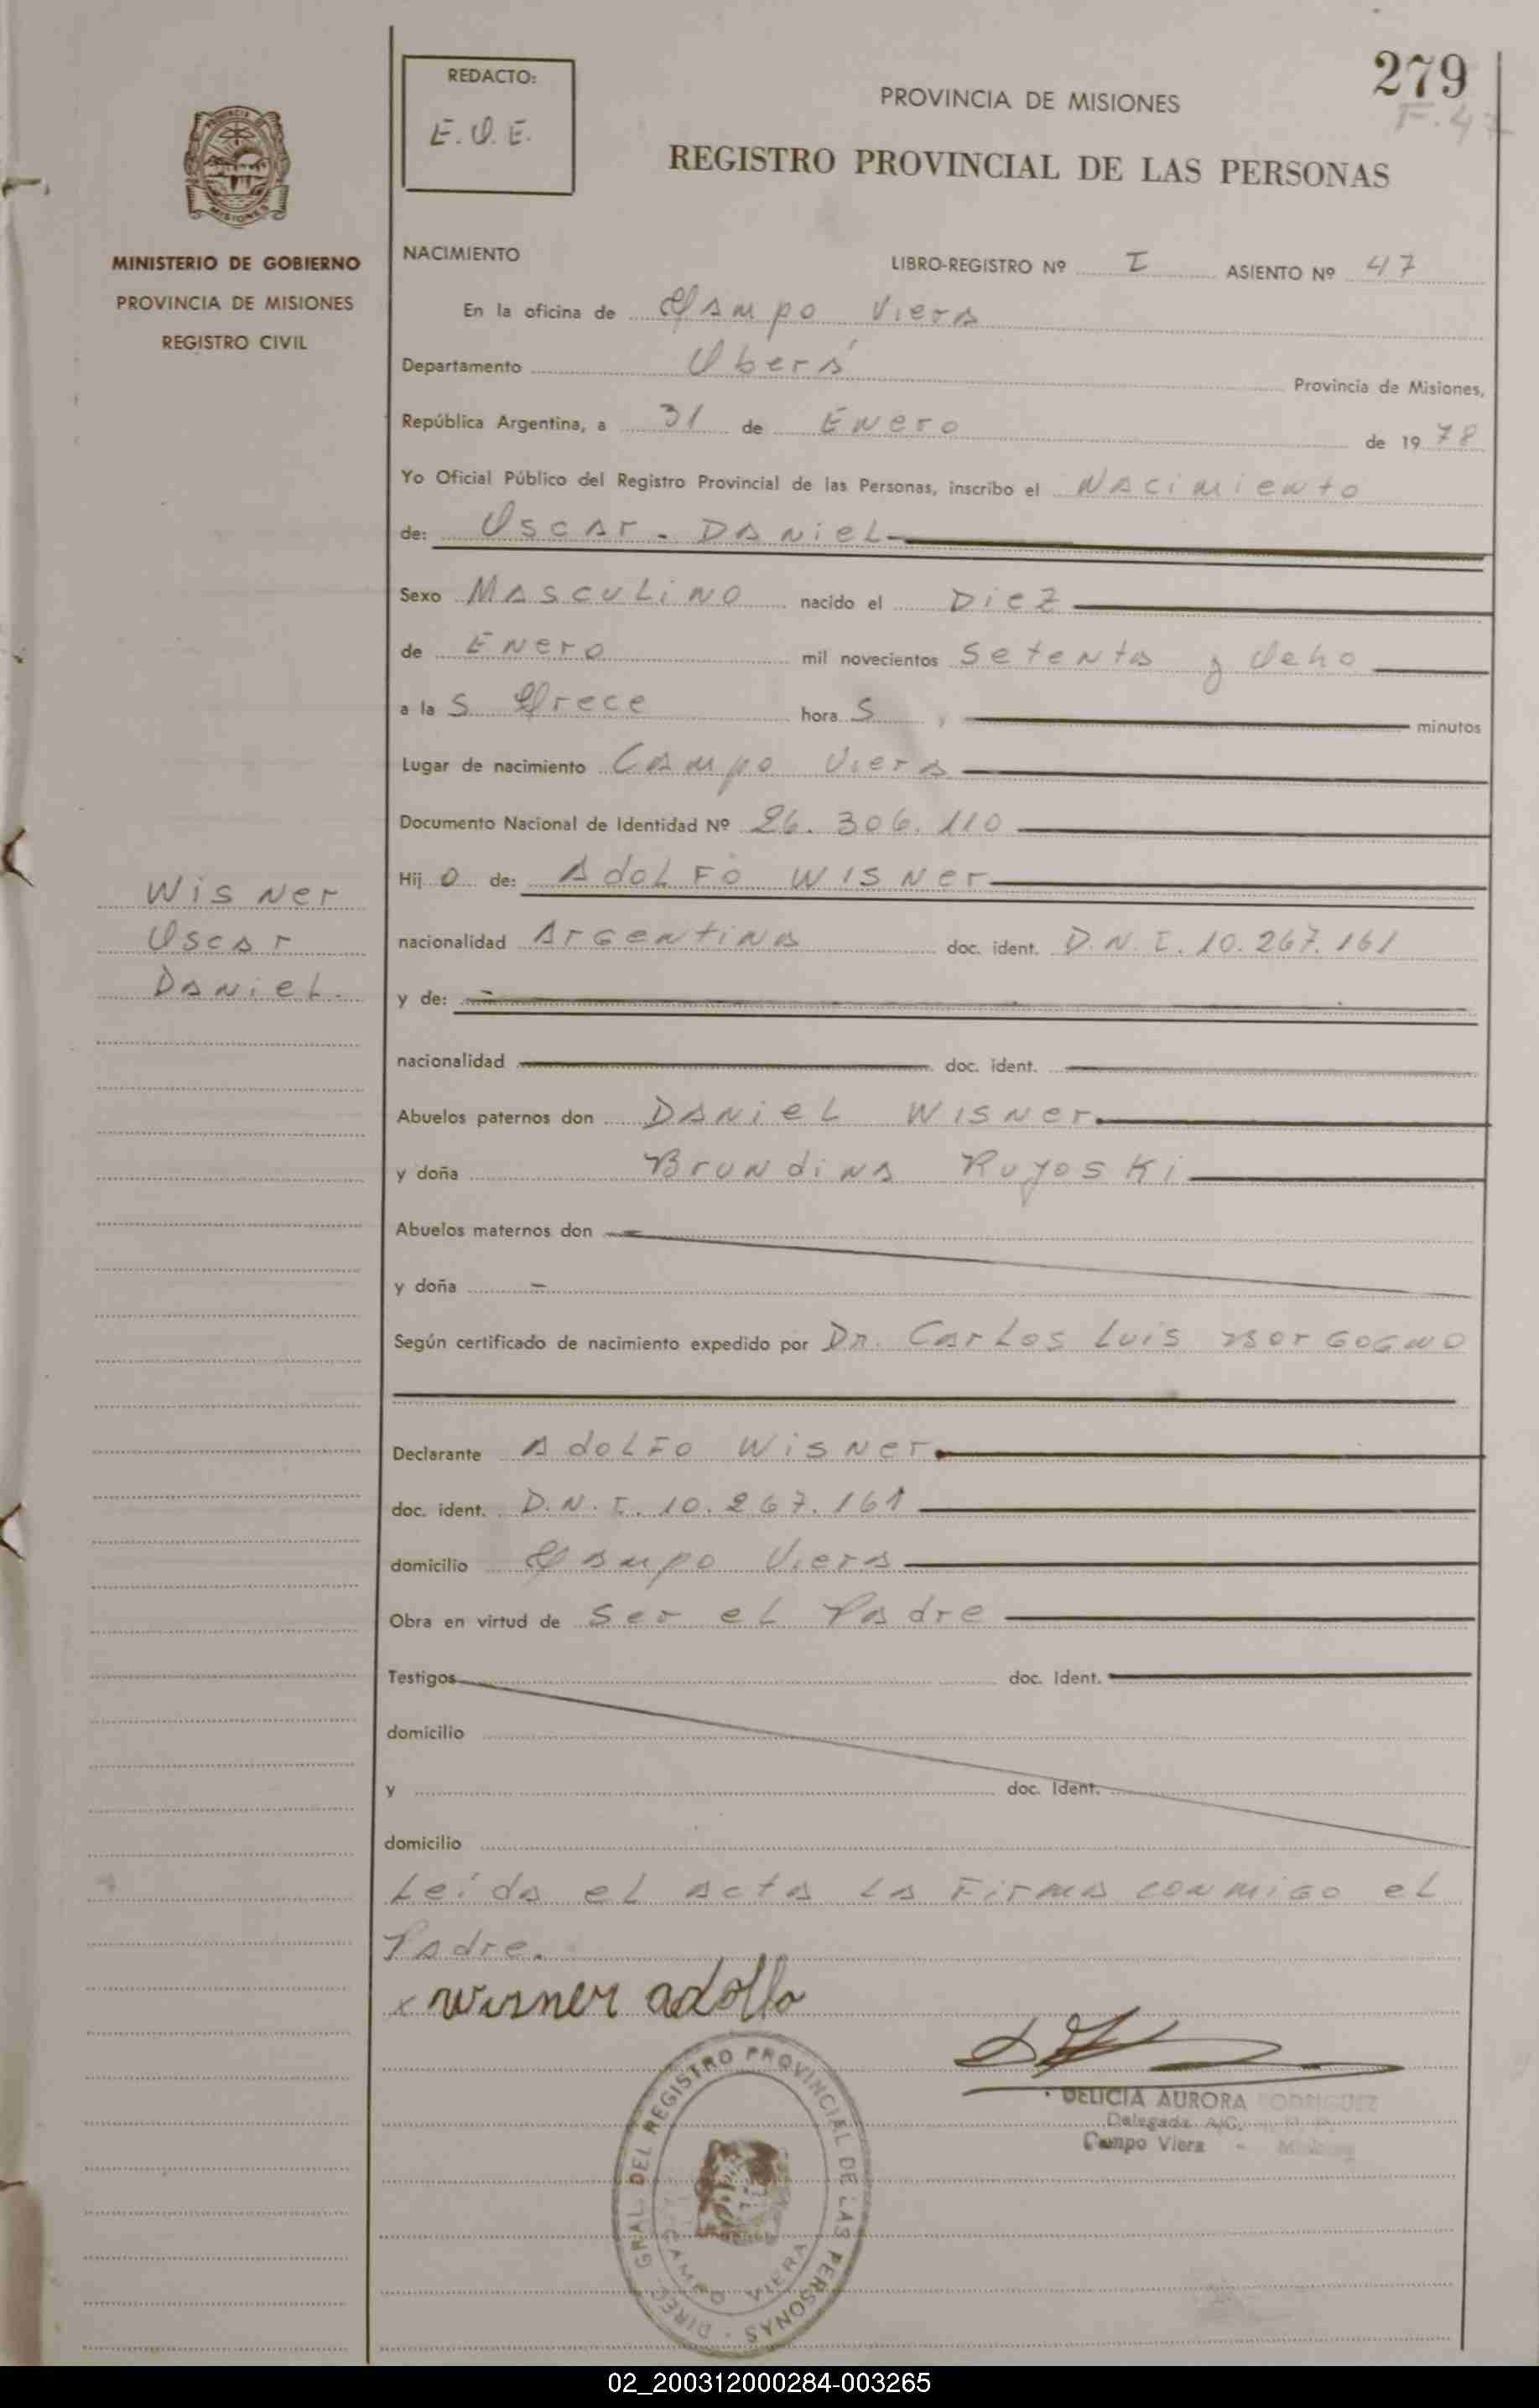 REDACTO:
E.O.E.
279
F.47
PROVINCIA DE MISIONES
REGISTRO PROVINCIAL DE LAS PERSONAS
PROVINCIA
MISIONES
MINISTERIO DE GOBIERNO
PROVINCIA DE MISIONES
REGISTRO CIVIL
NACIMIENTO
LIBRO-REGISTRO Nº I ASIENTO Nº 47
En la oficina de Campo Viera
Departamento Oberá Provincia de Misiones,
República Argentina, a 31 de Enero de 1978
Yo Oficial Público del Registro Provincial de las Personas, inscribo el Nacimiento
de: Oscar - Daniel
Sexo Masculino nacido el Diez
de Enero mil novecientos setenta y Ocho
a las Trece horas, minutos
Lugar de nacimiento Campo Viera
Documento Nacional de Identidad Nº 26.306.110
Hijo de: Adolfo Wisner
Wisner
Oscar
Daniel.
nacionalidad Argentina doc. ident. D.N.I. 10.267.161
y de:
nacionalidad doc. ident.
Abuelos paternos don Daniel Wisner
y doña Brundina Ruyoski
Abuelos maternos don
y doña
Según certificado de nacimiento expedido por Dr. Carlos Luis Borgogno
Declarante Adolfo Wisner
doc. ident. D.N.I. 10.267.161
domicilio Campo Viera
Obra en virtud de ser el Padre
Testigos doc. Ident.
domicilio
y doc. Ident.
domicilio
Leída el acta la firma conmigo el
Padre.
x wisner adolfo
DELICIA AURORA RODRIGUEZ
Delegada A/C.
Campo Viera - Misiones
DIREC. GRAL. DEL REGISTRO PROVINCIAL DE LAS PERSONAS
CAMPO VIERA
02_200312000284-003265